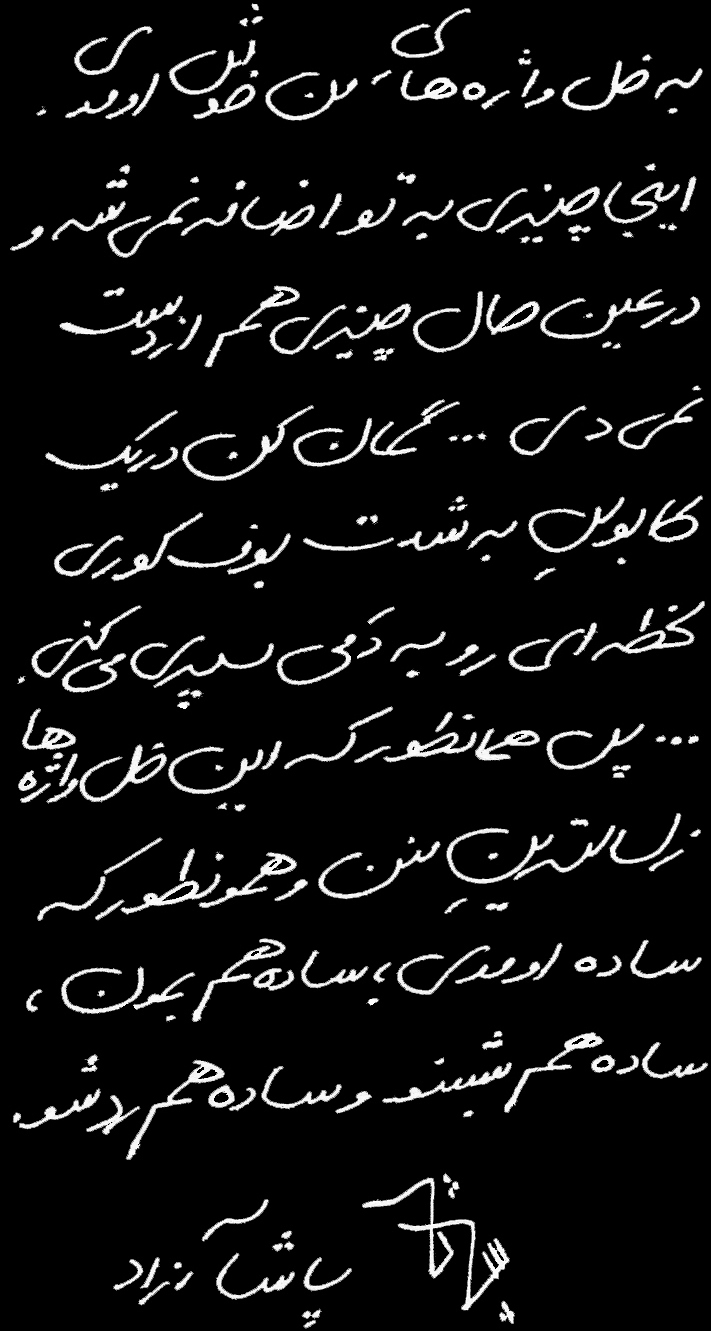 به ظل واژه‌های من خوش اومدی.
اینجا چیزی به تو اضافه نمی‌شه و
در عین حال چیزی هم از دست
نمی‌دی ... گمان کن در یک
کابوسِ به شدت بوف کوری
لحظه‌ای رو به دَمی سپری می‌کنی.
... پس همانطور که این ظل واژه‌ها
زلالترینِ منن و همونطور که
ساده اومدی، ساده هم بمون،
ساده هم بشنو و ساده هم رد شو.
پاشا راد